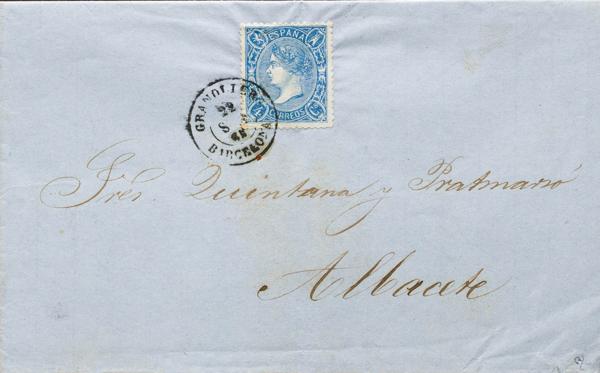 ESPAÑA
4 CS
CORREOS
GRANOLLERS
22
BARCELONA
Sres. Quintana y Pratmarsó
Albacete